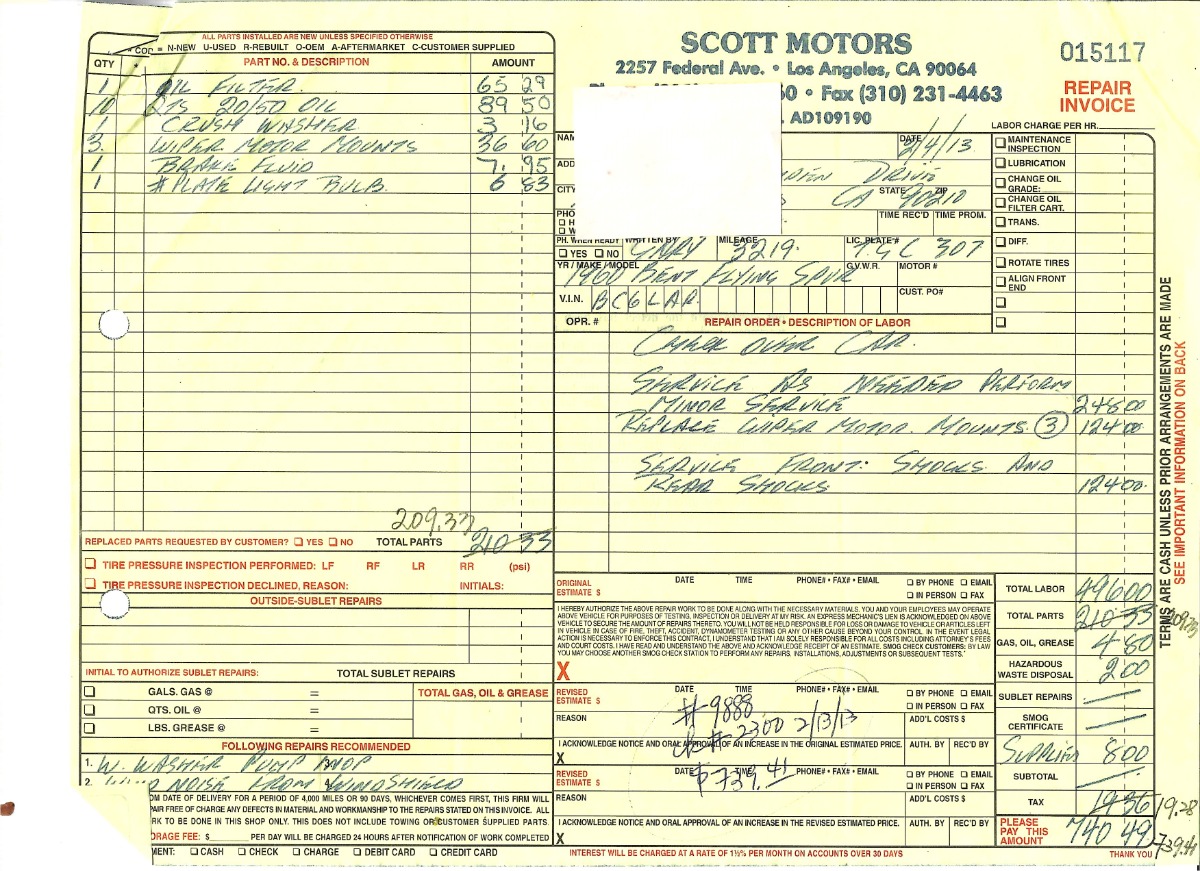 ALL PARTS INSTALLED ARE NEW UNLESS SPECIFIED OTHERWISE
N-NEW U-USED R-REBUILT O-OEM A-AFTERMARKET C-CUSTOMER SUPPLIED
QTY PART NO. & DESCRIPTION AMOUNT
1 OIL FILTER 65 29
10 QTS 20/50 OIL 89 50
1 CRUSH WASHER 3 16
3 WIPER MOTOR MOUNTS 36 60
1 BRAKE FLUID 7. 95
1 # PLATE LIGHT BULB 6 83
209.33
REPLACED PARTS REQUESTED BY CUSTOMER? YES NO TOTAL PARTS 210 33
TIRE PRESSURE INSPECTION PERFORMED: LF RF LR RR (psi)
TIRE PRESSURE INSPECTION DECLINED, REASON: INITIALS:
OUTSIDE-SUBLET REPAIRS
INITIAL TO AUTHORIZE SUBLET REPAIRS: TOTAL SUBLET REPAIRS
GALS. GAS @ = TOTAL GAS, OIL & GREASE
QTS. OIL @ =
LBS. GREASE @ =
FOLLOWING REPAIRS RECOMMENDED
1. W. WASHER PUMP INOP
2. NOISE FROM WINDSHIELD
OM DATE OF DELIVERY FOR A PERIOD OF 4,000 MILES OR 90 DAYS, WHICHEVER COMES FIRST, THIS FIRM WILL
PAIR FREE OF CHARGE ANY DEFECTS IN MATERIAL AND WORKMANSHIP TO THE REPAIRS STATED ON THIS INVOICE. ALL
RK TO BE DONE IN THIS SHOP ONLY. THIS DOES NOT INCLUDE TOWING OR CUSTOMER SUPPLIED PARTS.
ORAGE FEE: $ PER DAY WILL BE CHARGED 24 HOURS AFTER NOTIFICATION OF WORK COMPLETED
MENT: CASH CHECK CHARGE DEBIT CARD CREDIT CARD
SCOTT MOTORS
2257 Federal Ave. • Los Angeles, CA 90064
60 • Fax (310) 231-4463
AD109190
015117
REPAIR
INVOICE
LABOR CHARGE PER HR.
NAM DATE 2/4/13
ADD DRIVE
CITY STATE ZIP CA 90210
PHO TIME REC'D TIME PROM.
PH. WHEN READY WRITTEN BY MILEAGE LIC. PLATE #
YES NO GARY 3219. TGC 307
YR / MAKE / MODEL G.V.W.R. MOTOR #
1960 BENT FLYING SPUR
V.I.N. BC6LAR CUST. PO#
MAINTENANCE
INSPECTION
LUBRICATION
CHANGE OIL
GRADE:
CHANGE OIL
FILTER CART.
TRANS.
DIFF.
ROTATE TIRES
ALIGN FRONT
END
OPR. # REPAIR ORDER • DESCRIPTION OF LABOR
CHECK OVER CAR.
SERVICE AS NEEDED PERFORM
MINOR SERVICE 248 00
REPLACE WIPER MOTOR MOUNTS. 3 124 00
SERVICE FRONT: SHOCKS AND
REAR SHOCKS 124 00
ORIGINAL ESTIMATE $ DATE TIME PHONE# • FAX# • EMAIL BY PHONE EMAIL IN PERSON FAX
I HEREBY AUTHORIZE THE ABOVE REPAIR WORK TO BE DONE ALONG WITH THE NECESSARY MATERIALS. YOU AND YOUR EMPLOYEES MAY OPERATE
ABOVE VEHICLE FOR PURPOSES OF TESTING, INSPECTION OR DELIVERY AT MY RISK. AN EXPRESS MECHANIC'S LIEN IS ACKNOWLEDGED ON ABOVE
VEHICLE TO SECURE THE AMOUNT OF REPAIRS THERETO. YOU WILL NOT BE HELD RESPONSIBLE FOR LOSS OR DAMAGE TO VEHICLE OR ARTICLES LEFT
IN VEHICLE IN CASE OF FIRE, THEFT, ACCIDENT, DYNAMOMETER TESTING OR ANY OTHER CAUSE BEYOND YOUR CONTROL. IN THE EVENT LEGAL
ACTION IS NECESSARY TO ENFORCE THIS CONTRACT, I UNDERSTAND THAT I AM SOLELY RESPONSIBLE FOR ALL COSTS INCLUDING ATTORNEY'S FEES
AND COURT COSTS. I HAVE READ AND UNDERSTAND THE ABOVE AND ACKNOWLEDGE RECEIPT OF AN ESTIMATE. SMOG CHECK CUSTOMERS: BY LAW
YOU MAY CHOOSE ANOTHER SMOG CHECK STATION TO PERFORM ANY REPAIRS, INSTALLATIONS, ADJUSTMENTS OR SUBSEQUENT TESTS.
X
REVISED ESTIMATE $ DATE TIME PHONE# • FAX# • EMAIL BY PHONE EMAIL IN PERSON FAX
# 9888
REASON ADD'L COSTS $
ck# 2300 2/13/13
I ACKNOWLEDGE NOTICE AND ORAL APPROVAL OF AN INCREASE IN THE ORIGINAL ESTIMATED PRICE. AUTH. BY REC'D BY
X
REVISED ESTIMATE $ DATE TIME PHONE# • FAX# • EMAIL BY PHONE EMAIL IN PERSON FAX
$ 739.41
REASON ADD'L COSTS $
I ACKNOWLEDGE NOTICE AND ORAL APPROVAL OF AN INCREASE IN THE REVISED ESTIMATED PRICE. AUTH. BY REC'D BY
X
INTEREST WILL BE CHARGED AT A RATE OF 1½% PER MONTH ON ACCOUNTS OVER 30 DAYS
TOTAL LABOR 496 00
TOTAL PARTS 210 33 209.33
GAS, OIL, GREASE 4 80
HAZARDOUS
WASTE DISPOSAL 2 00
SUBLET REPAIRS
SMOG
CERTIFICATE
SUPPLIES 8 00
SUBTOTAL
TAX 19 36 19.28
PLEASE
PAY THIS
AMOUNT 740 49 739.41
THANK YOU
TERMS ARE CASH UNLESS PRIOR ARRANGEMENTS ARE MADE
SEE IMPORTANT INFORMATION ON BACK